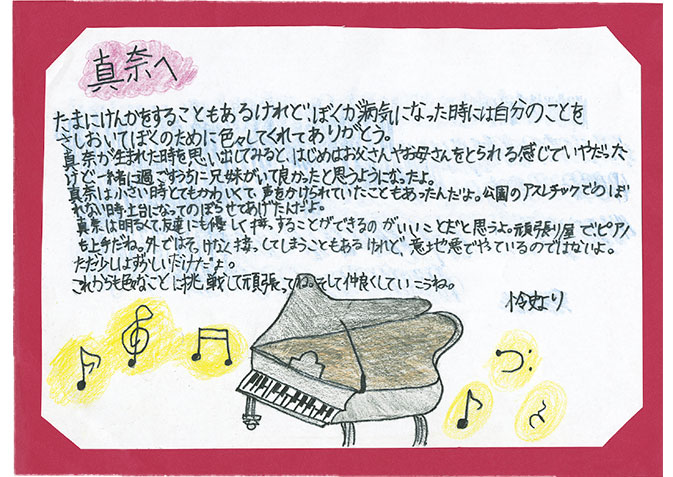 真奈へ
たまにけんかをすることもあるけれど、ぼくが病気になった時には自分のことを
さしおいてぼくのために色々してくれてありがとう。
真奈が生まれた時を思い出してみると、はじめはお父さんやお母さんをとられる感じでいやだった
けど一緒に過ごすうちに兄妹がいて良かったと思うようになったよ。
真奈は小さい時とてもかわいくて、声をかけられていたこともあったんだよ。公園のアスレチックでのぼ
れない時、土台になってのぼらせてあげたんだよ。
真奈は明るくて、友達にも優しく接することができるのがいいことだと思うよ。頑張り屋でピアノ
も上手だね。外ではそっけなく接してしまうこともあるけれど、意地悪でやているのではないよ。
ただ少しはずかしいだけだよ。
これからも色なことに挑戦して頑張ってね。そして仲良くしていこうね。
怜史より